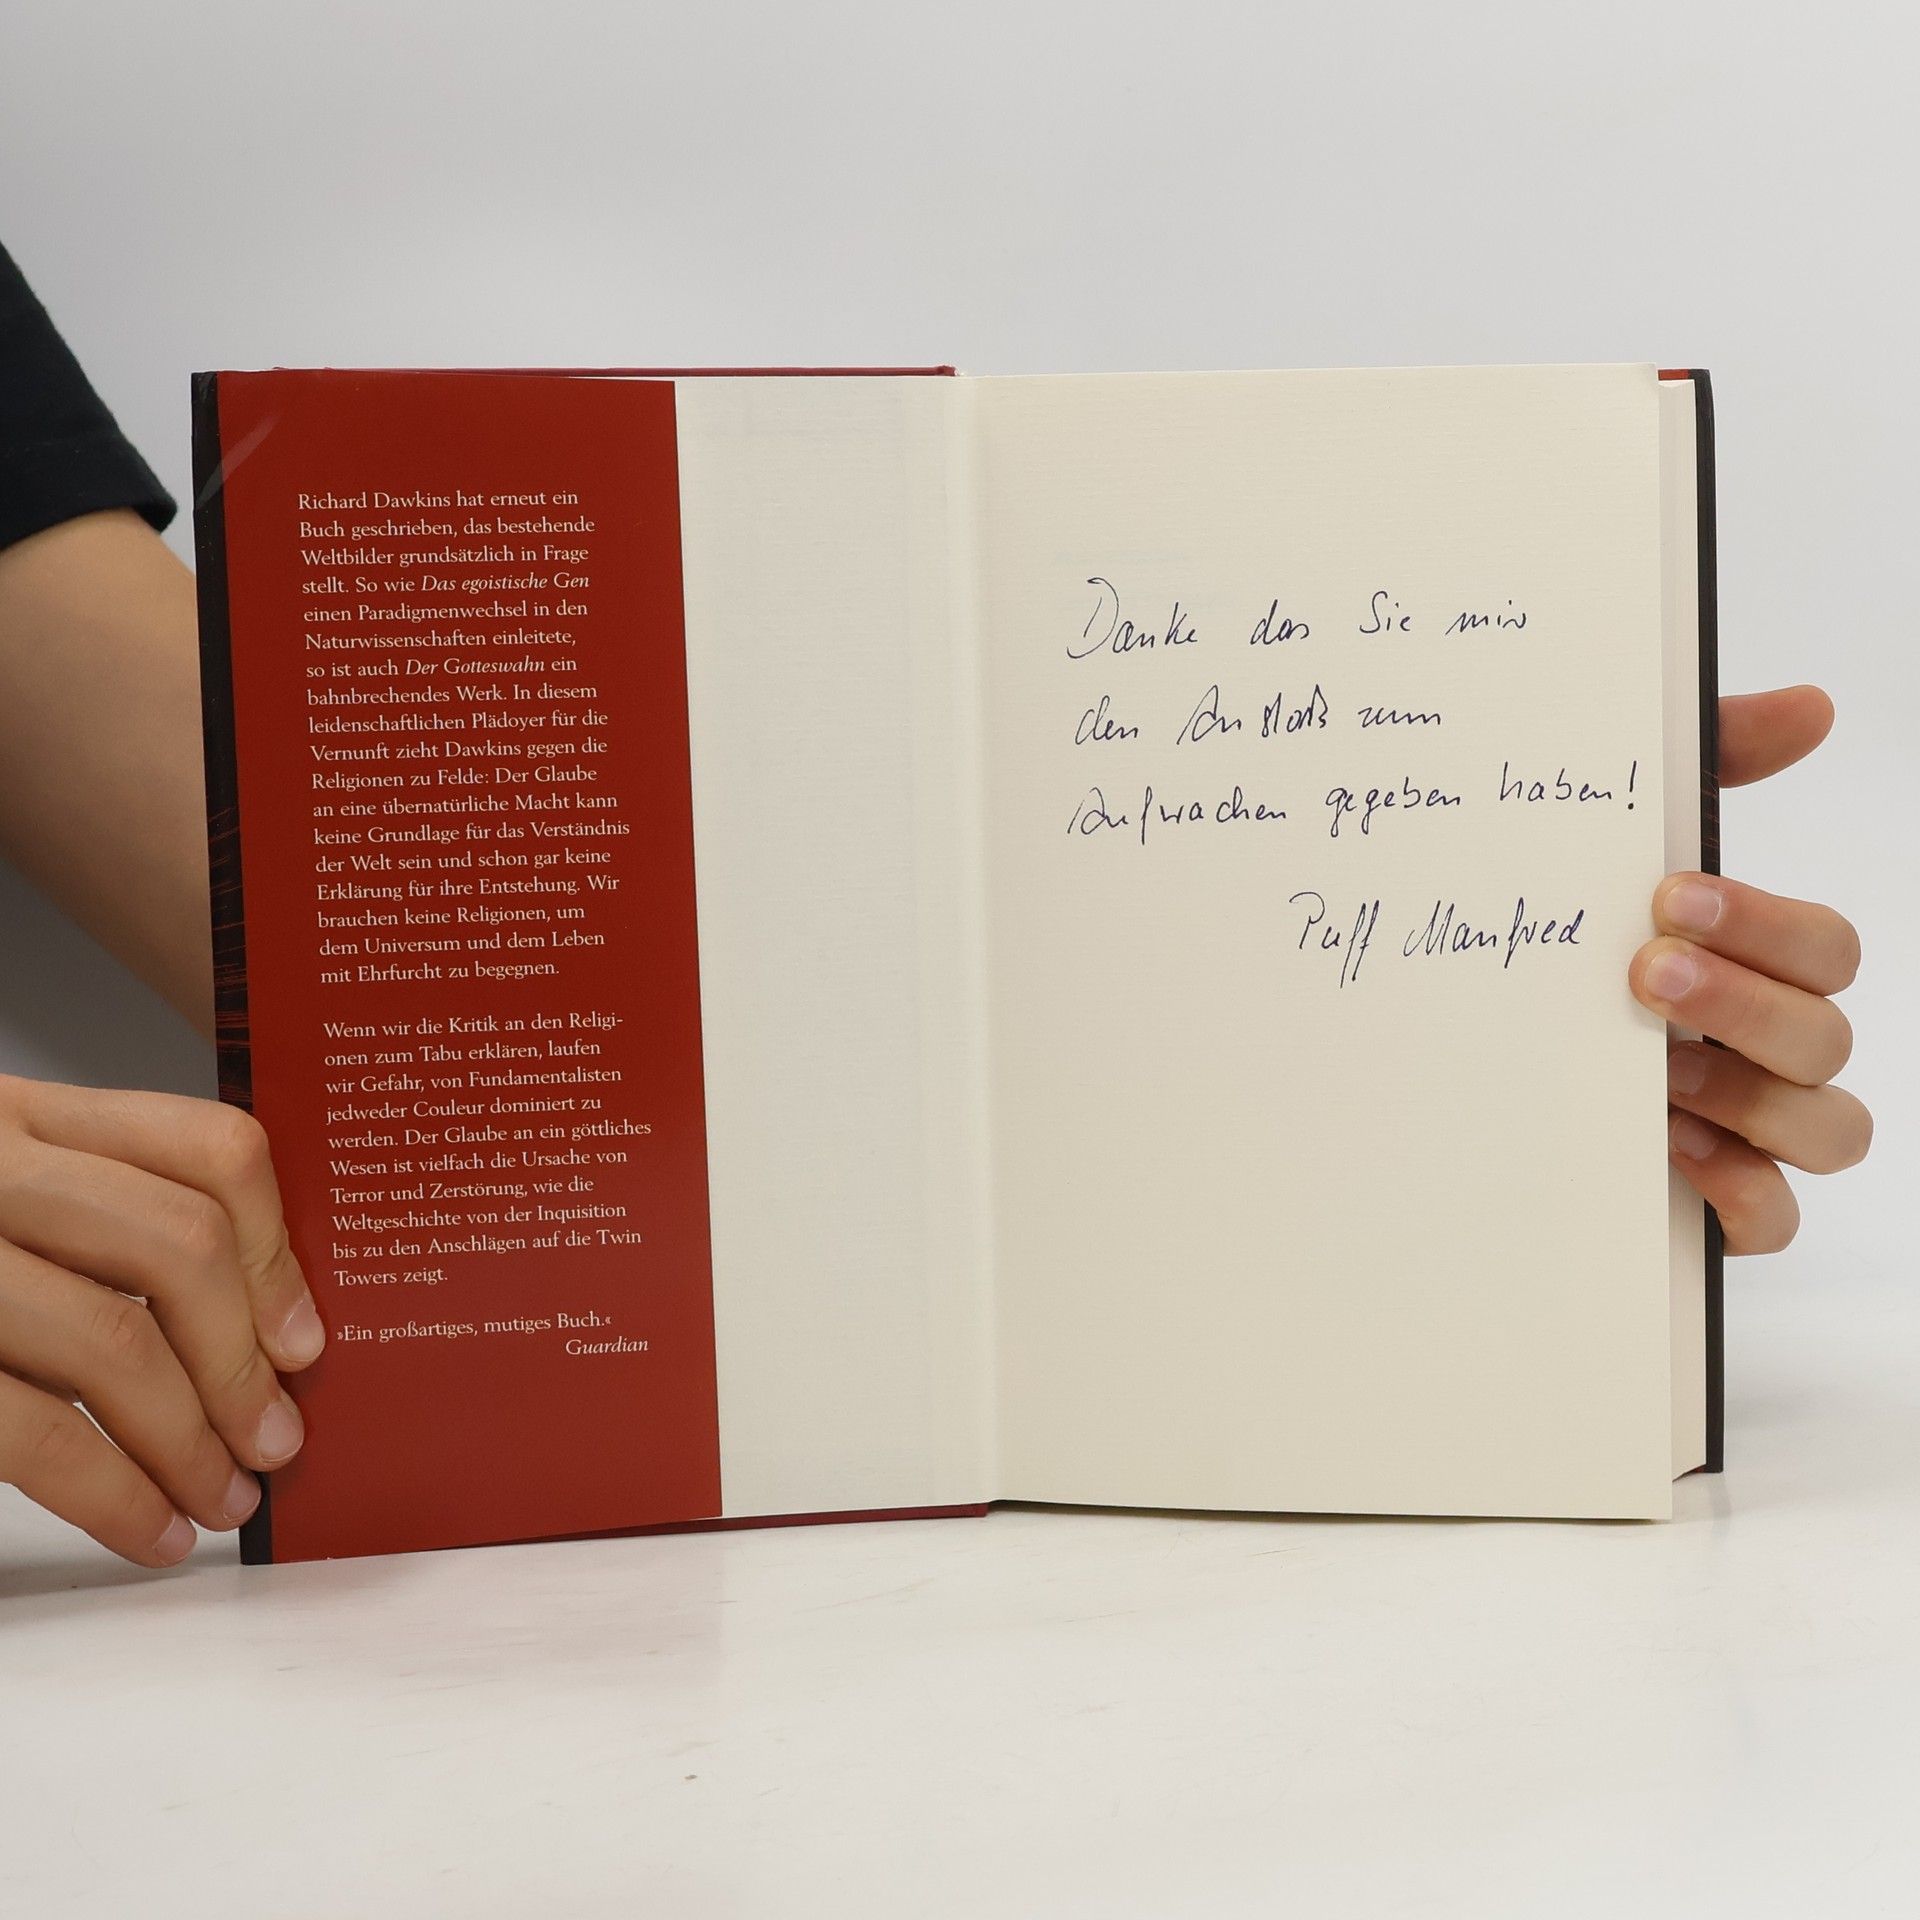 Richard Dawkins hat erneut ein
Buch geschrieben, das bestehende
Weltbilder grundsätzlich in Frage
stellt. So wie Das egoistische Gen
einen Paradigmenwechsel in den
Naturwissenschaften einleitete,
so ist auch Der Gotteswahn ein
bahnbrechendes Werk. In diesem
leidenschaftlichen Plädoyer für die
Vernunft zieht Dawkins gegen die
Religionen zu Felde: Der Glaube
an eine übernatürliche Macht kann
keine Grundlage für das Verständnis
der Welt sein und schon gar keine
Erklärung für ihre Entstehung. Wir
brauchen keine Religionen, um
dem Universum und dem Leben
mit Ehrfurcht zu begegnen.
Wenn wir die Kritik an den Religi-
onen zum Tabu erklären, laufen
wir Gefahr, von Fundamentalisten
jedweder Couleur dominiert zu
werden. Der Glaube an ein göttliches
Wesen ist vielfach die Ursache von
Terror und Zerstörung, wie die
Weltgeschichte von der Inquisition
bis zu den Anschlägen auf die Twin
Towers zeigt.
»Ein großartiges, mutiges Buch.«
Guardian
Danke das Sie mir
den Anstoß zum
Aufwachen gegeben haben!
Puff Manfred